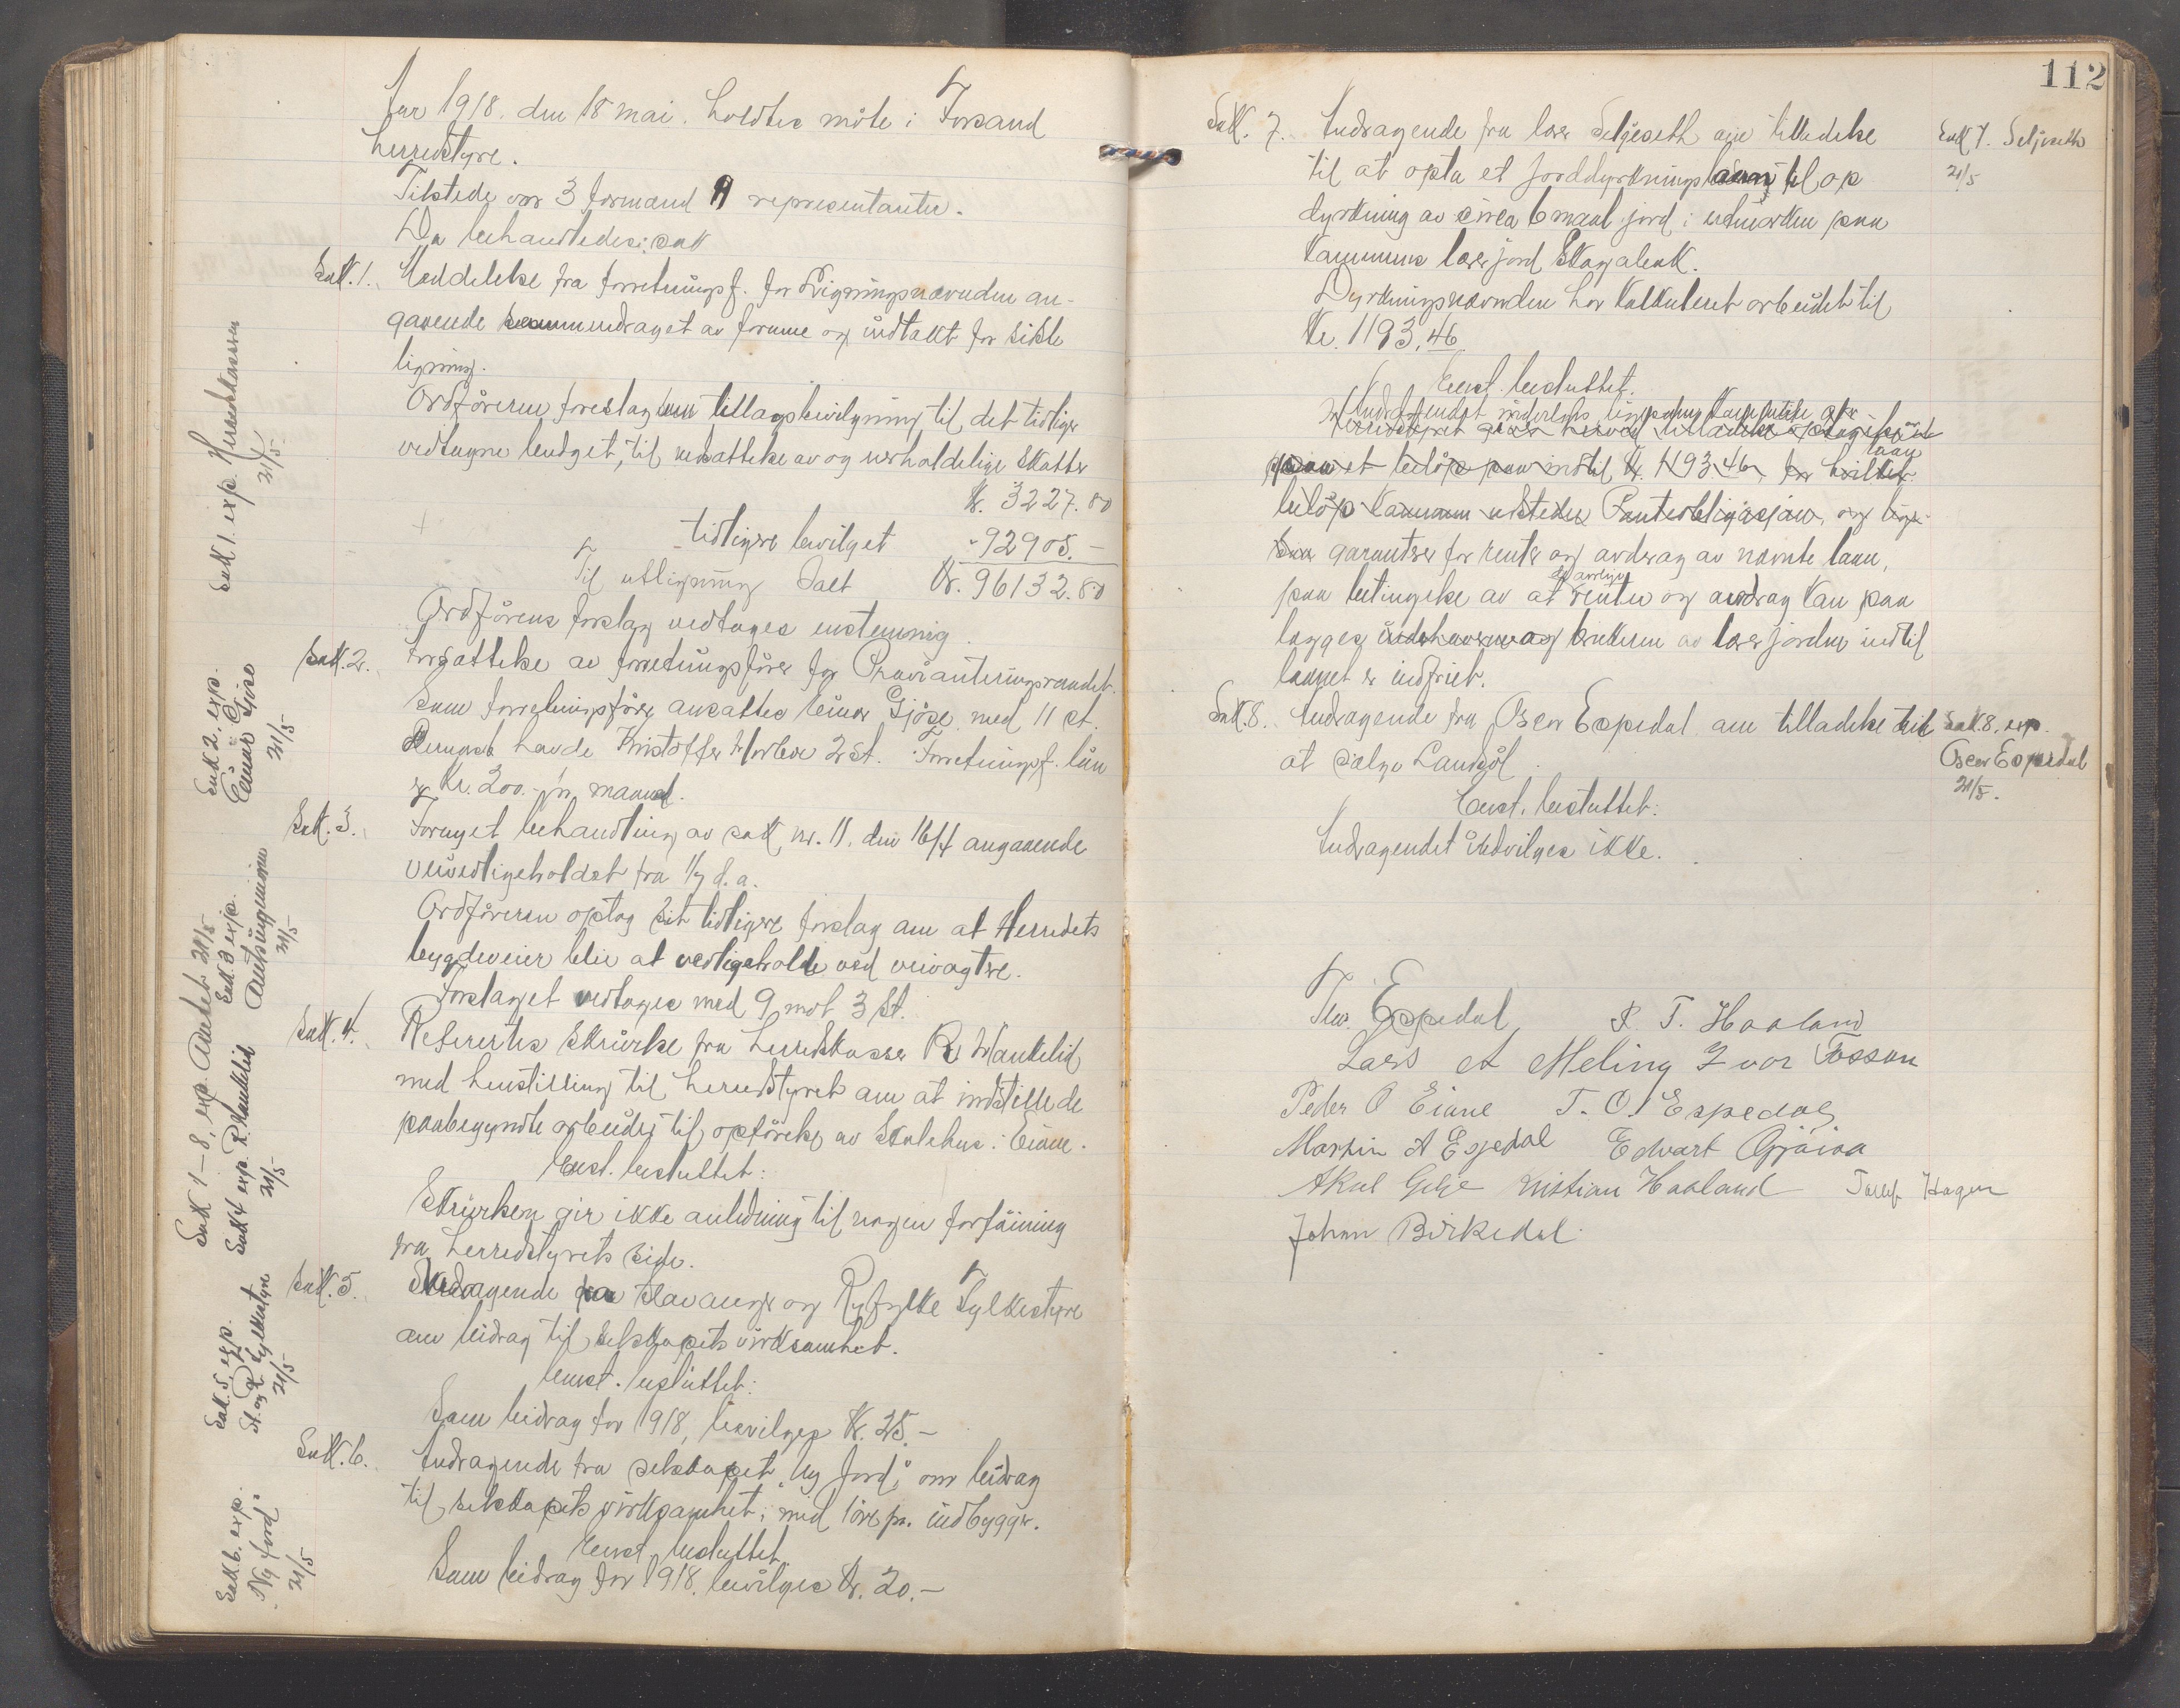 Aar 1918. den 18 mai. holdtes möte i Forsand
herredstyre.
Tilstede var 3 formænd 9 representanter.
Da behandledes: sak
Sak. 1. Meddelelse fra forretningsf. for Ligningsnævnden an-
gaaende sammendraget av formue og indtækt for siste
ligning.
Ordföreren foreslag en tillægsbevilgning til det tidliger
vedtagne budget, til nedsættelse av og uerholdelige skatter
Kr. 3227.80
tidligere bevilget " 92905.—
Til utligning Ialt Kr. 96132.80
Ordförens forslag vedtages enstemmig.
Sak. 2. Ansættelse av forretningsförer for Provianteringsraadet.
Som forretningsförer ansattes Einar Gjöse med 11 st.
Dernæst havde Kristoffer 2 st. Forretningsf. lön
er Kr. 200.- pr. maaned.
Sak. 3. Fornyet behandling av sak nr. 11. den 16/4 angaaende
veivedligeholdet fra 1/7 d.a.
Ordföreren optog sit tidligere forslag om at Herredets
bygdeveier blir at vedligeholde ved veivogtere.
Forslaget vedtages med 9 mot 3 st.
Sak. 4. Refereertes skrivelse fra herredskasser R. Haukelid
med henstilling til herredstyret om at indstille de
paabegyndte arbeider til opförelse av Skolehus i Eiane.
Enst. besluttet:
Skrivelsen gir ikke anledning til nogen forföining
fra herredstyrets side.
Sak. 5. Andragende fra Stavanger og Ryfylke Fylkestyre
om bidrag til selskapets virksomhet.
Enst. besluttet:
Som bidrag for 1918, bevilges Kr. 25.—
Sak. 6. Andragende fra selskapet "Ny Jord" om bidrag
til selskapets virksomhet, med 1 öre pr. indbygger.
Enst. besluttet
Som bidrag for 1918. bevilges Kr. 20.—
Sak 1. exp. Herredskassen
21/5
Sak 2. exp.
Einar Gjöse
21/5
Sak 1 – 8. exp. Amtet 21/5
Sak. 3 exp.
Amtsingeniören
21/5
Sak 4 exp. R. Haukelid
21/5
Sak. 5. exp.
St. og R. Fylkestyre
21/5
Sak. 6. exp.
"Ny Jord"
21/5
112
Sak. 7. Andragende fra lærer Seljeseth om tilladelse
til at opta et jorddyrkningslaan til op
dyrkning av circa 6 maal jord i utmarken paa
Kommunens lærerjord Skogabakk.
Dyrkningsnævnden har kalkuleret arbeidet til
Kr. 1193,46
Enst. besluttet.
Andragendet
Herredstyret giver herved tilladelse
laan
paa et belöp paa indtil Kr. 1193.46, for hvilket
belöp Kommunen utsteder Panteobligasjon, og
garantser for renter og avdrag av nævnte laan,
paa betingelse av at renter og avdrag kan paa
lægges brukeren av lærerjorden indtil
laanet er indfriet.
Sak. 8. Andragende fra Oscar Espedal om tilladelse til
at sælge Landsöl.
Enst. besluttet:
Andragendet indvilges ikke.
Sak 7. Seljeseth
21/5
Sak. 8. exp.
Oscar Espedal
21/5.
Thor. Espedal R. T. Haaland
Lars A Meling Ivar Fossan
Peder O. Eiane T. O. Espedal
Martin A Espedal Edvart Gjöisa
Aksel Gilje Kristian Haaland Tollef Hagen
Johan Birkedal.